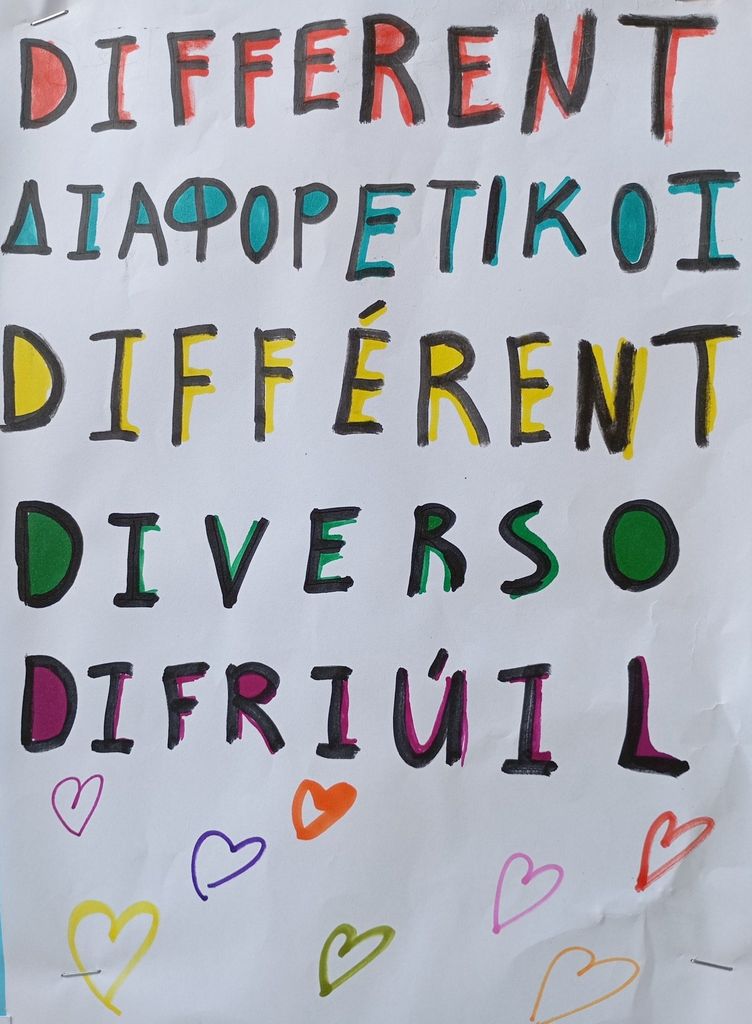 DIFFERENT
ΔΙΑΦΟΡΕΤΙΚΟΙ
DIFFÉRENT
DIVERSO
DIFRIÚIL